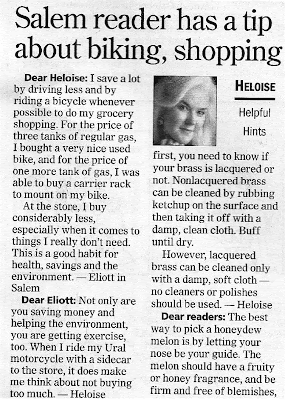 Salem reader has a tip
about biking, shopping
Dear Heloise: I save a lot
by driving less and by
riding a bicycle whenever
possible to do my grocery
shopping. For the price of
three tanks of regular gas,
I bought a very nice used
bike, and for the price of
one more tank of gas, I was
able to buy a carrier rack
to mount on my bike.
At the store, I buy
considerably less,
especially when it comes to
things I really don't need.
This is a good habit for
health, savings and the
environment. — Eliott in
Salem
Dear Eliott: Not only are
you saving money and
helping the environment,
you are getting exercise,
too. When I ride my Ural
motorcycle with a sidecar
to the store, it does make
me think about not buying
too much. — Heloise
HELOISE
Helpful
Hints
first, you need to know if
your brass is lacquered or
not. Nonlacquered brass
can be cleaned by rubbing
ketchup on the surface and
then taking it off with a
damp, clean cloth. Buff
until dry.
However, lacquered
brass can be cleaned only
with a damp, soft cloth —
no cleaners or polishes
should be used. — Heloise
Dear readers: The best
way to pick a honeydew
melon is by letting your
nose be your guide. The
melon should have a fruity
or honey fragrance, and be
firm and free of blemishes,